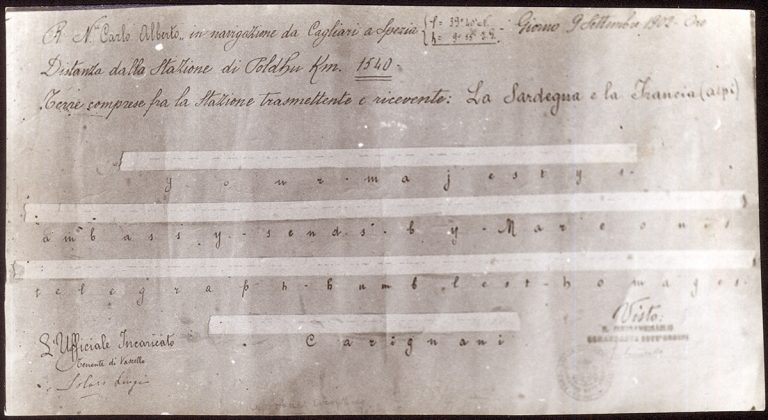 R. Nᵉ "Carlo Alberto" in navigazione da Cagliari a Spezia - Giorno 9 Settembre 1902 - Ore
Distanza dalla Stazione di Poldhu Km. 1540 -
Terre comprese fra la Stazione trasmettente e ricevente: La Sardegna e la Francia (alpi)
your - majestys -
ambassy - sends - by - Marconis
telegraph - humblest - homages -
Carignani
L'Ufficiale Incaricato
Tenente di Vascello
Solari Luigi
Visto: